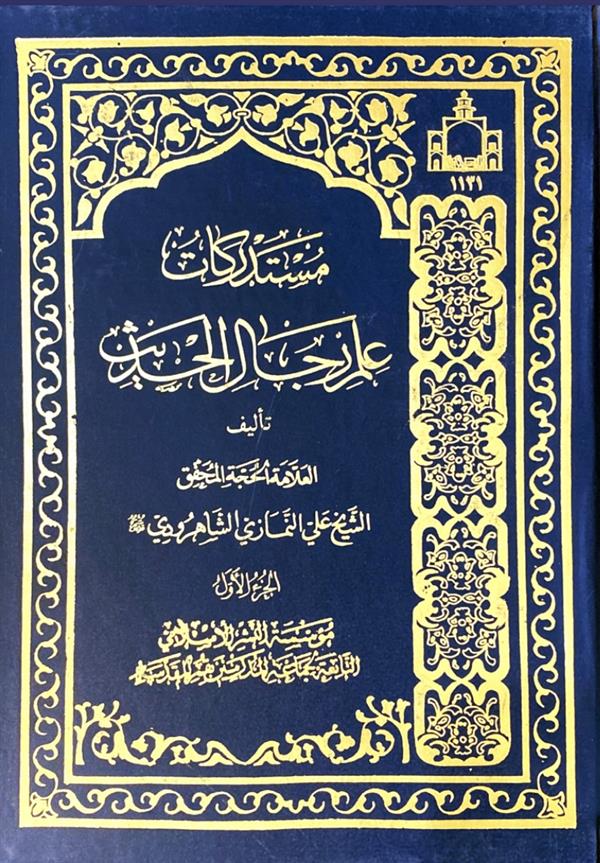 ١١٣١
مستدركات
علم رجال الحديث
تأليف
العلامة الحجة المحقق
الشيخ علي النمازي الشاهرودي
الجزء الأول
مؤسسة النشر الإسلامي
التابعة لجماعة المدرسين بقم المقدسة